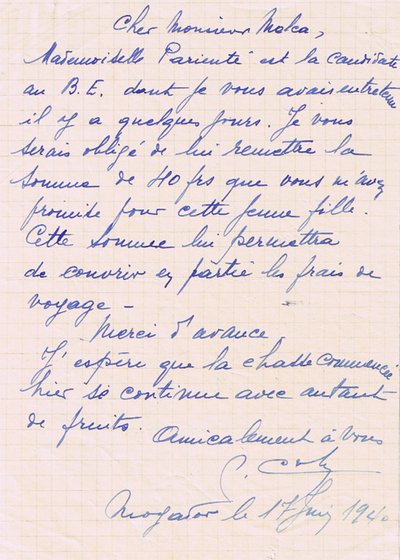 Cher Monsieur Moka,
Mademoiselle Parienté est la candidate
au B.E. dont je vous avais entretenu
il y a quelques jours. Je vous
serais obligé de lui remettre la
somme de 40 frs que vous m'avez
promise pour cette jeune fille.
Cette somme lui permettra
de couvrir en partie les frais de
voyage -
Merci d'avance
J'espère que la chasse commencée
hier se continue avec autant
de fruits.
Amicalement à vous
Mogador le 17 Juin 1940